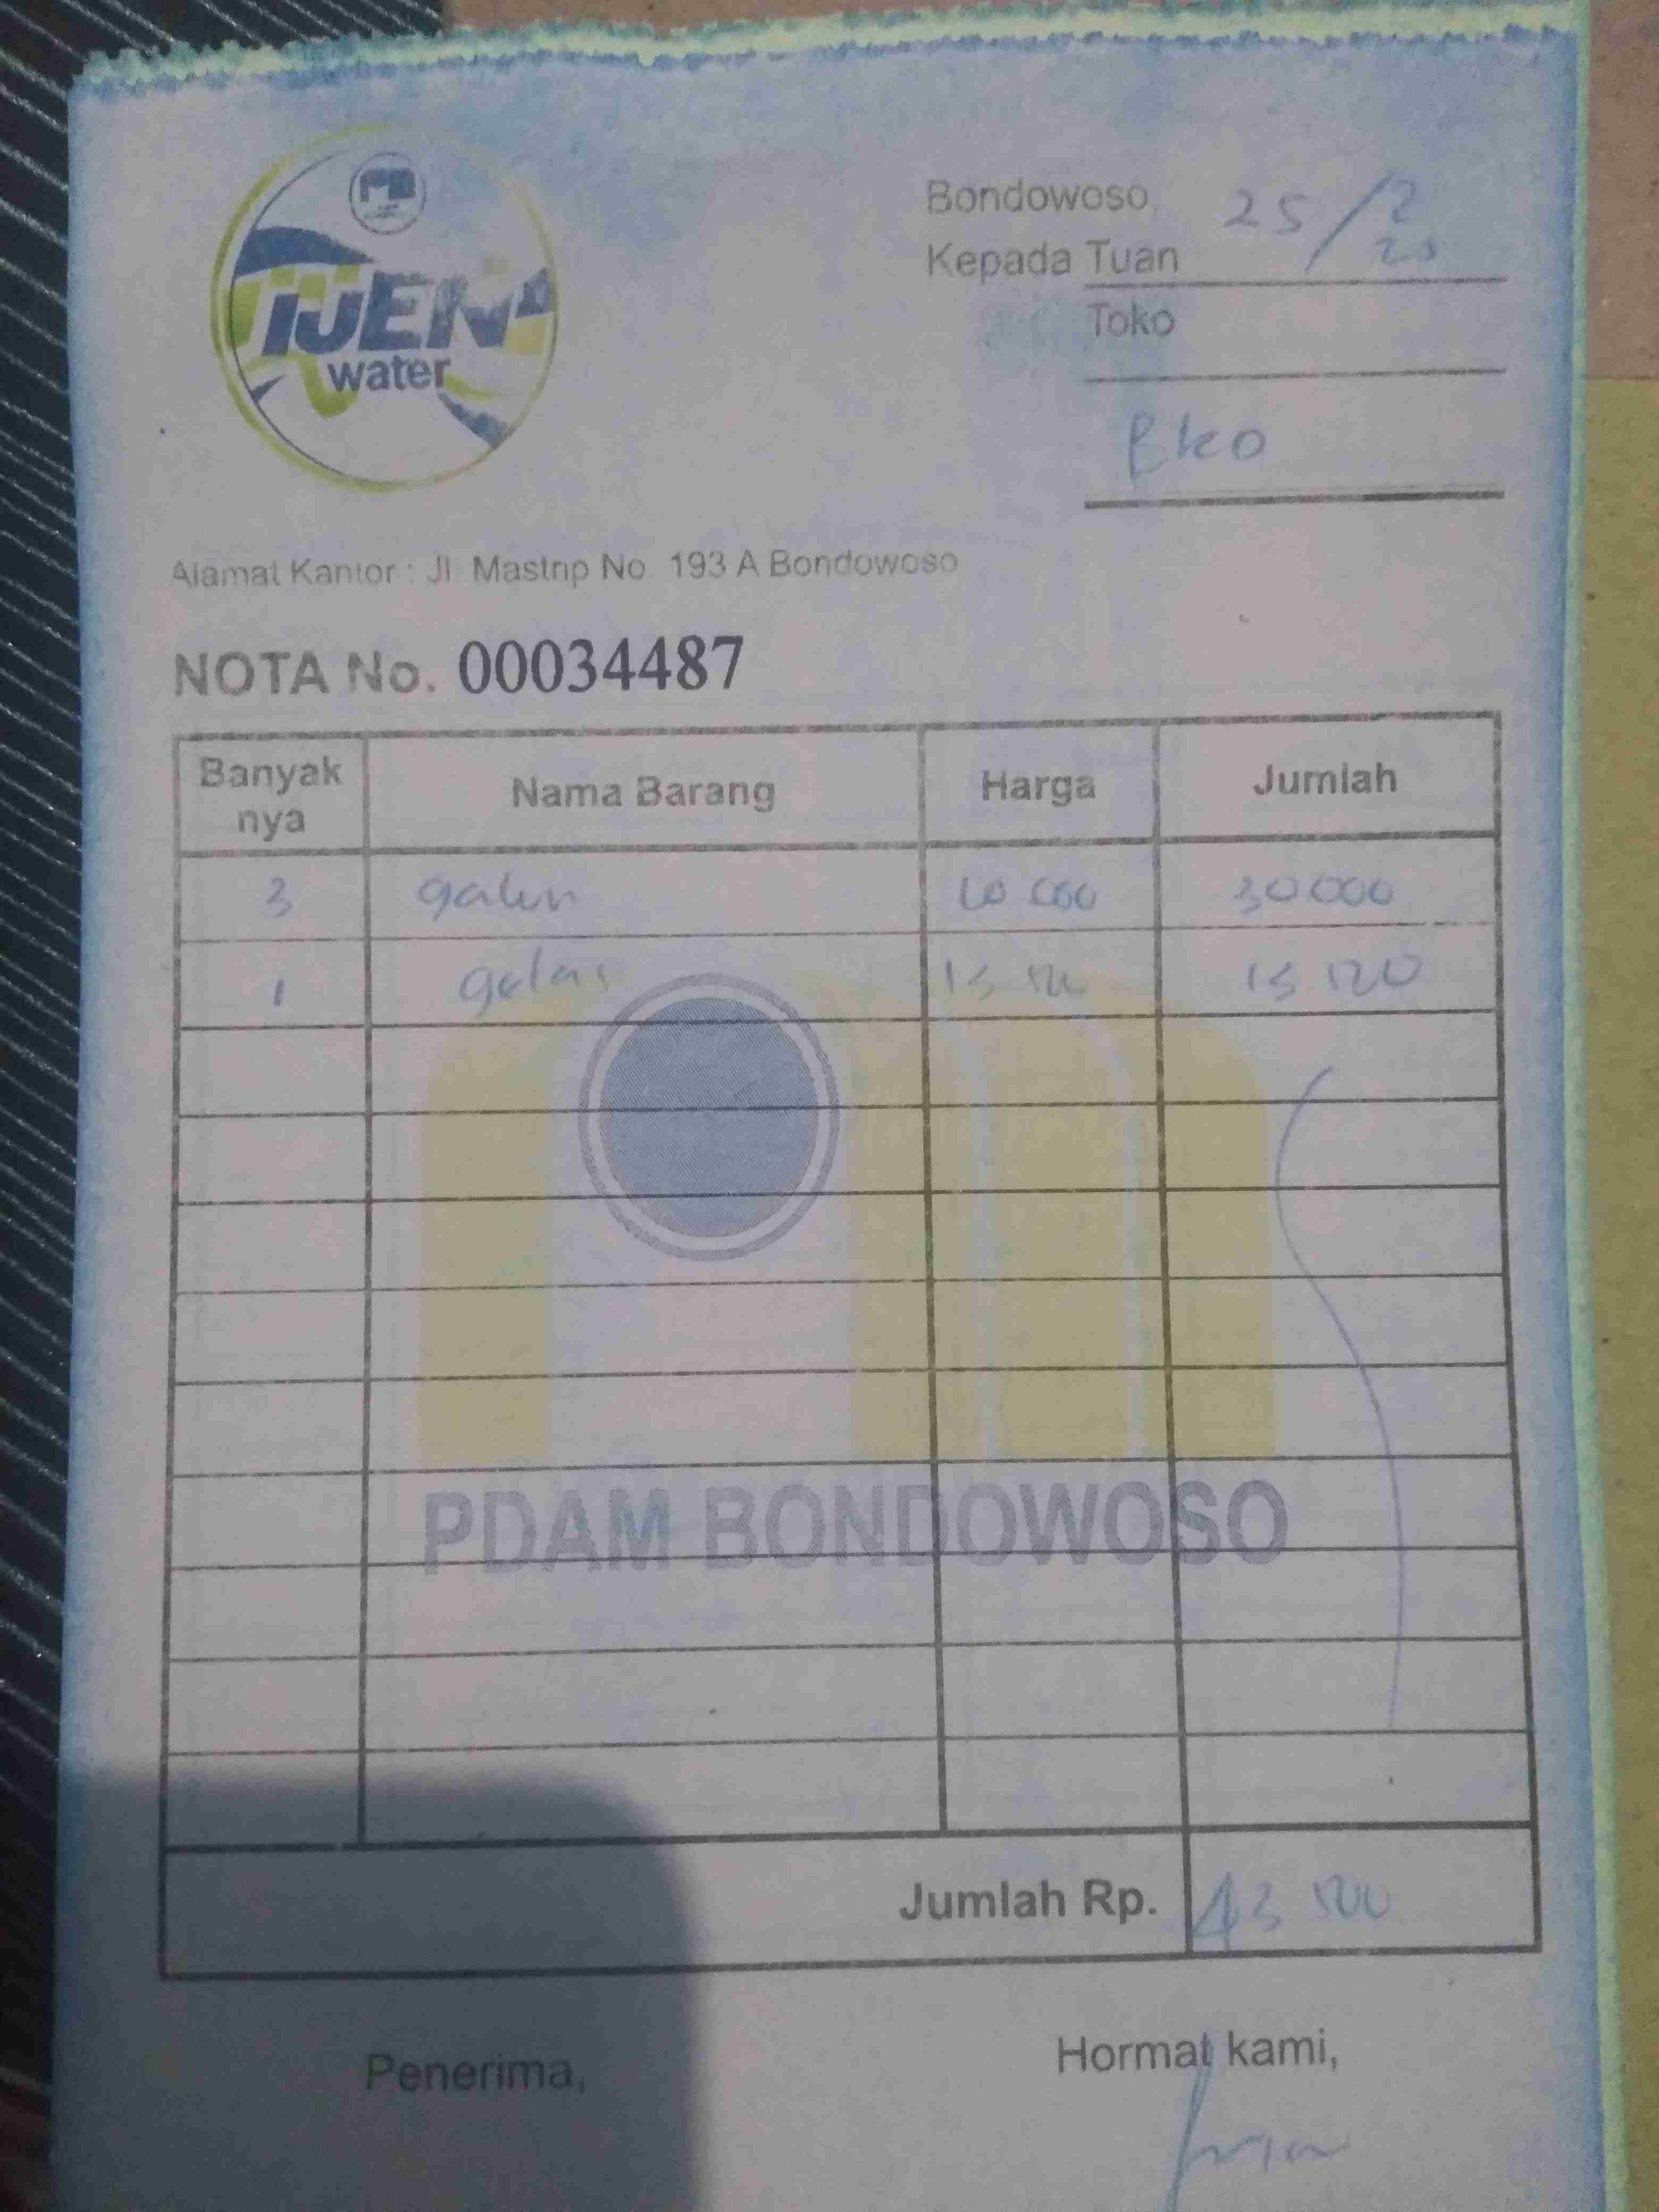 IJEN
water
Bondowoso, 25/2
Kepada Tuan 20
Toko
Eko
Alamat Kantor : Jl. Mastrip No. 193 A Bondowoso
NOTA No. 00034487
Banyak nya Nama Barang Harga Jumlah
3 galon 10 000 30 000
1 gelas 13 500 13 500
PDAM BONDOWOSO
Jumlah Rp. 43 500
Penerima, Hormat kami,